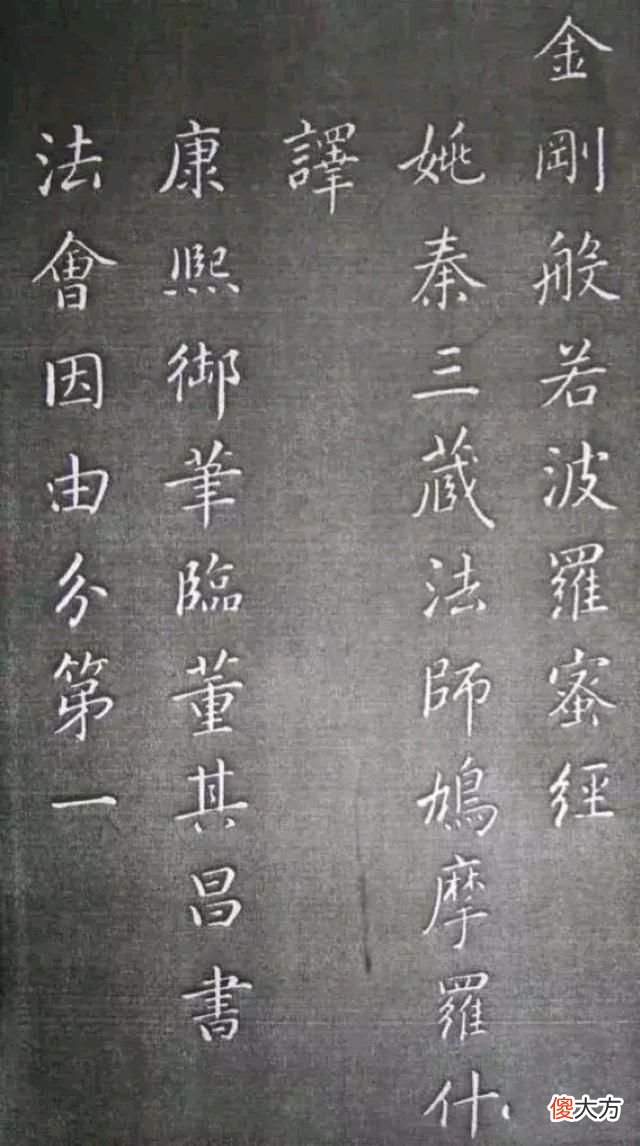 金剛般若波羅蜜經
姚秦三藏法師鳩摩羅什
譯
康熙御筆臨董其昌書
法會因由分第一
傻大方